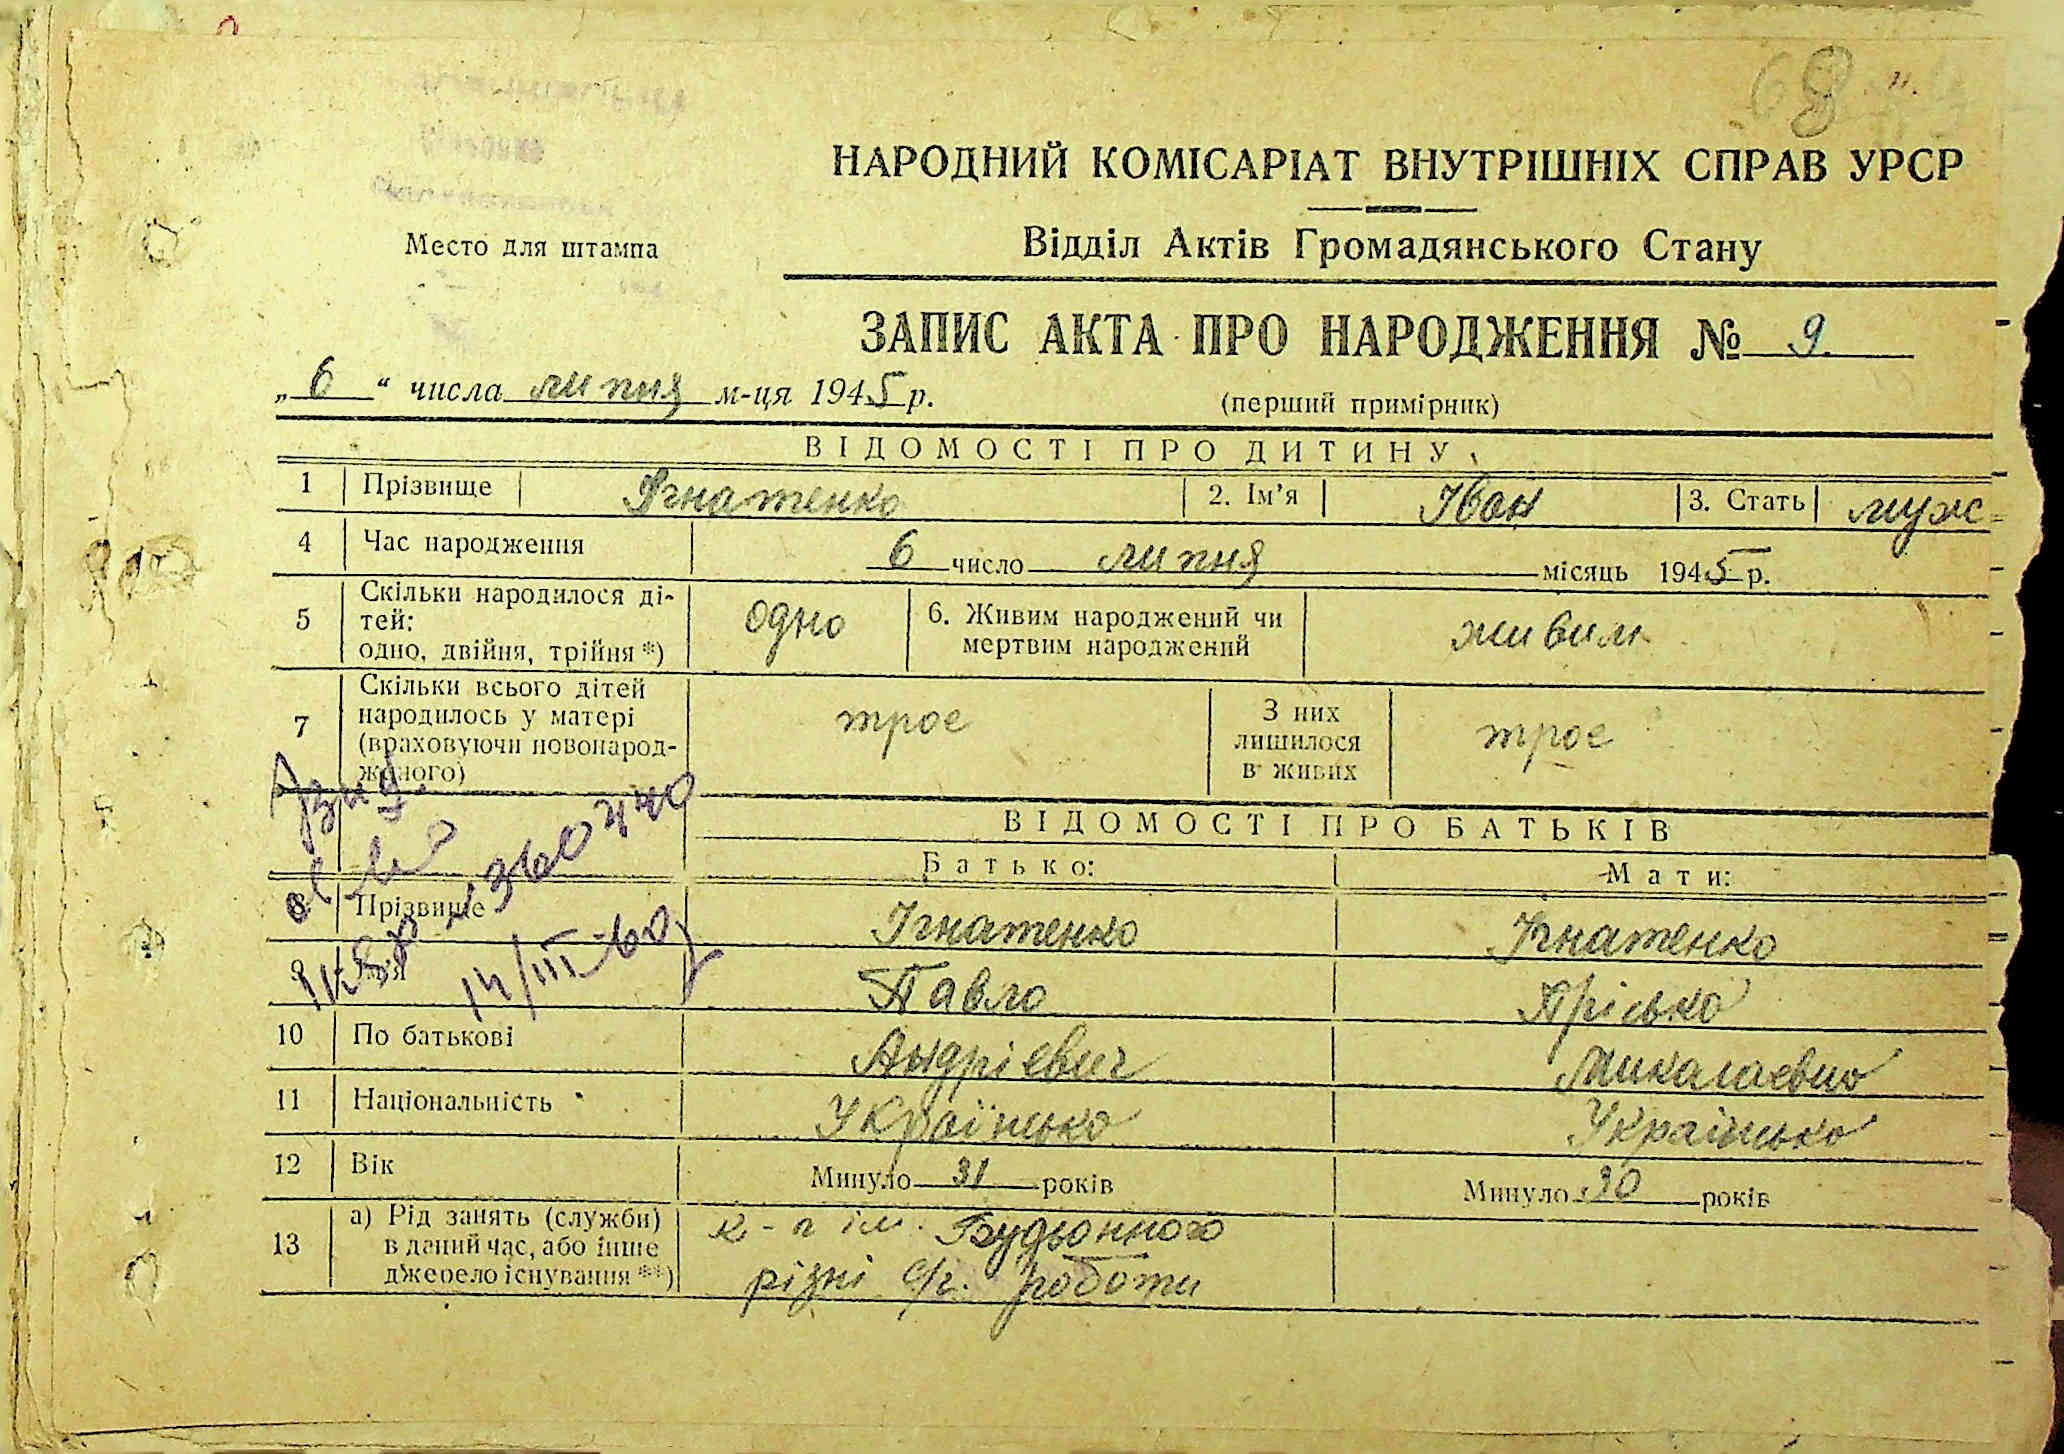 НАРОДНИЙ КОМІСАРІАТ ВНУТРІШНІХ СПРАВ УРСР
Место для штампа
Відділ Актів Громадянського Стану
ЗАПИС АКТА ПРО НАРОДЖЕННЯ № 9.
„6“ числа липня м-ця 1945 р.
(перший примірник)
ВІДОМОСТІ ПРО ДИТИНУ
1 Прізвище Ігнатенко 2. Ім’я Іван 3. Стать муж
4 Час народження 6 число липня місяць 1945 р.
5 Скільки народилося ді-
тей:
одно, двійня, трійня *) одно 6. Живим народжений чи
мертвим народжений живим
7 Скільки всього дітей
народилось у матері
(враховуючи новонарод-
женого) троє З них
лишилося
в живих троє
ВІДОМОСТІ ПРО БАТЬКІВ
Батько: Мати:
8 Прізвище Ігнатенко Ігнатенко
9 Ім'я Павло Пріська
14/III-60
10 По батькові Андрієвич Миколаевна
11 Національність Українська Українська
12 Вік Минуло 31 років Минуло 30 років
13 а) Рід занять (служби)
в даний час, або інше
джерело існування **) к-г ім. Будьонного
різні с/г. роботи